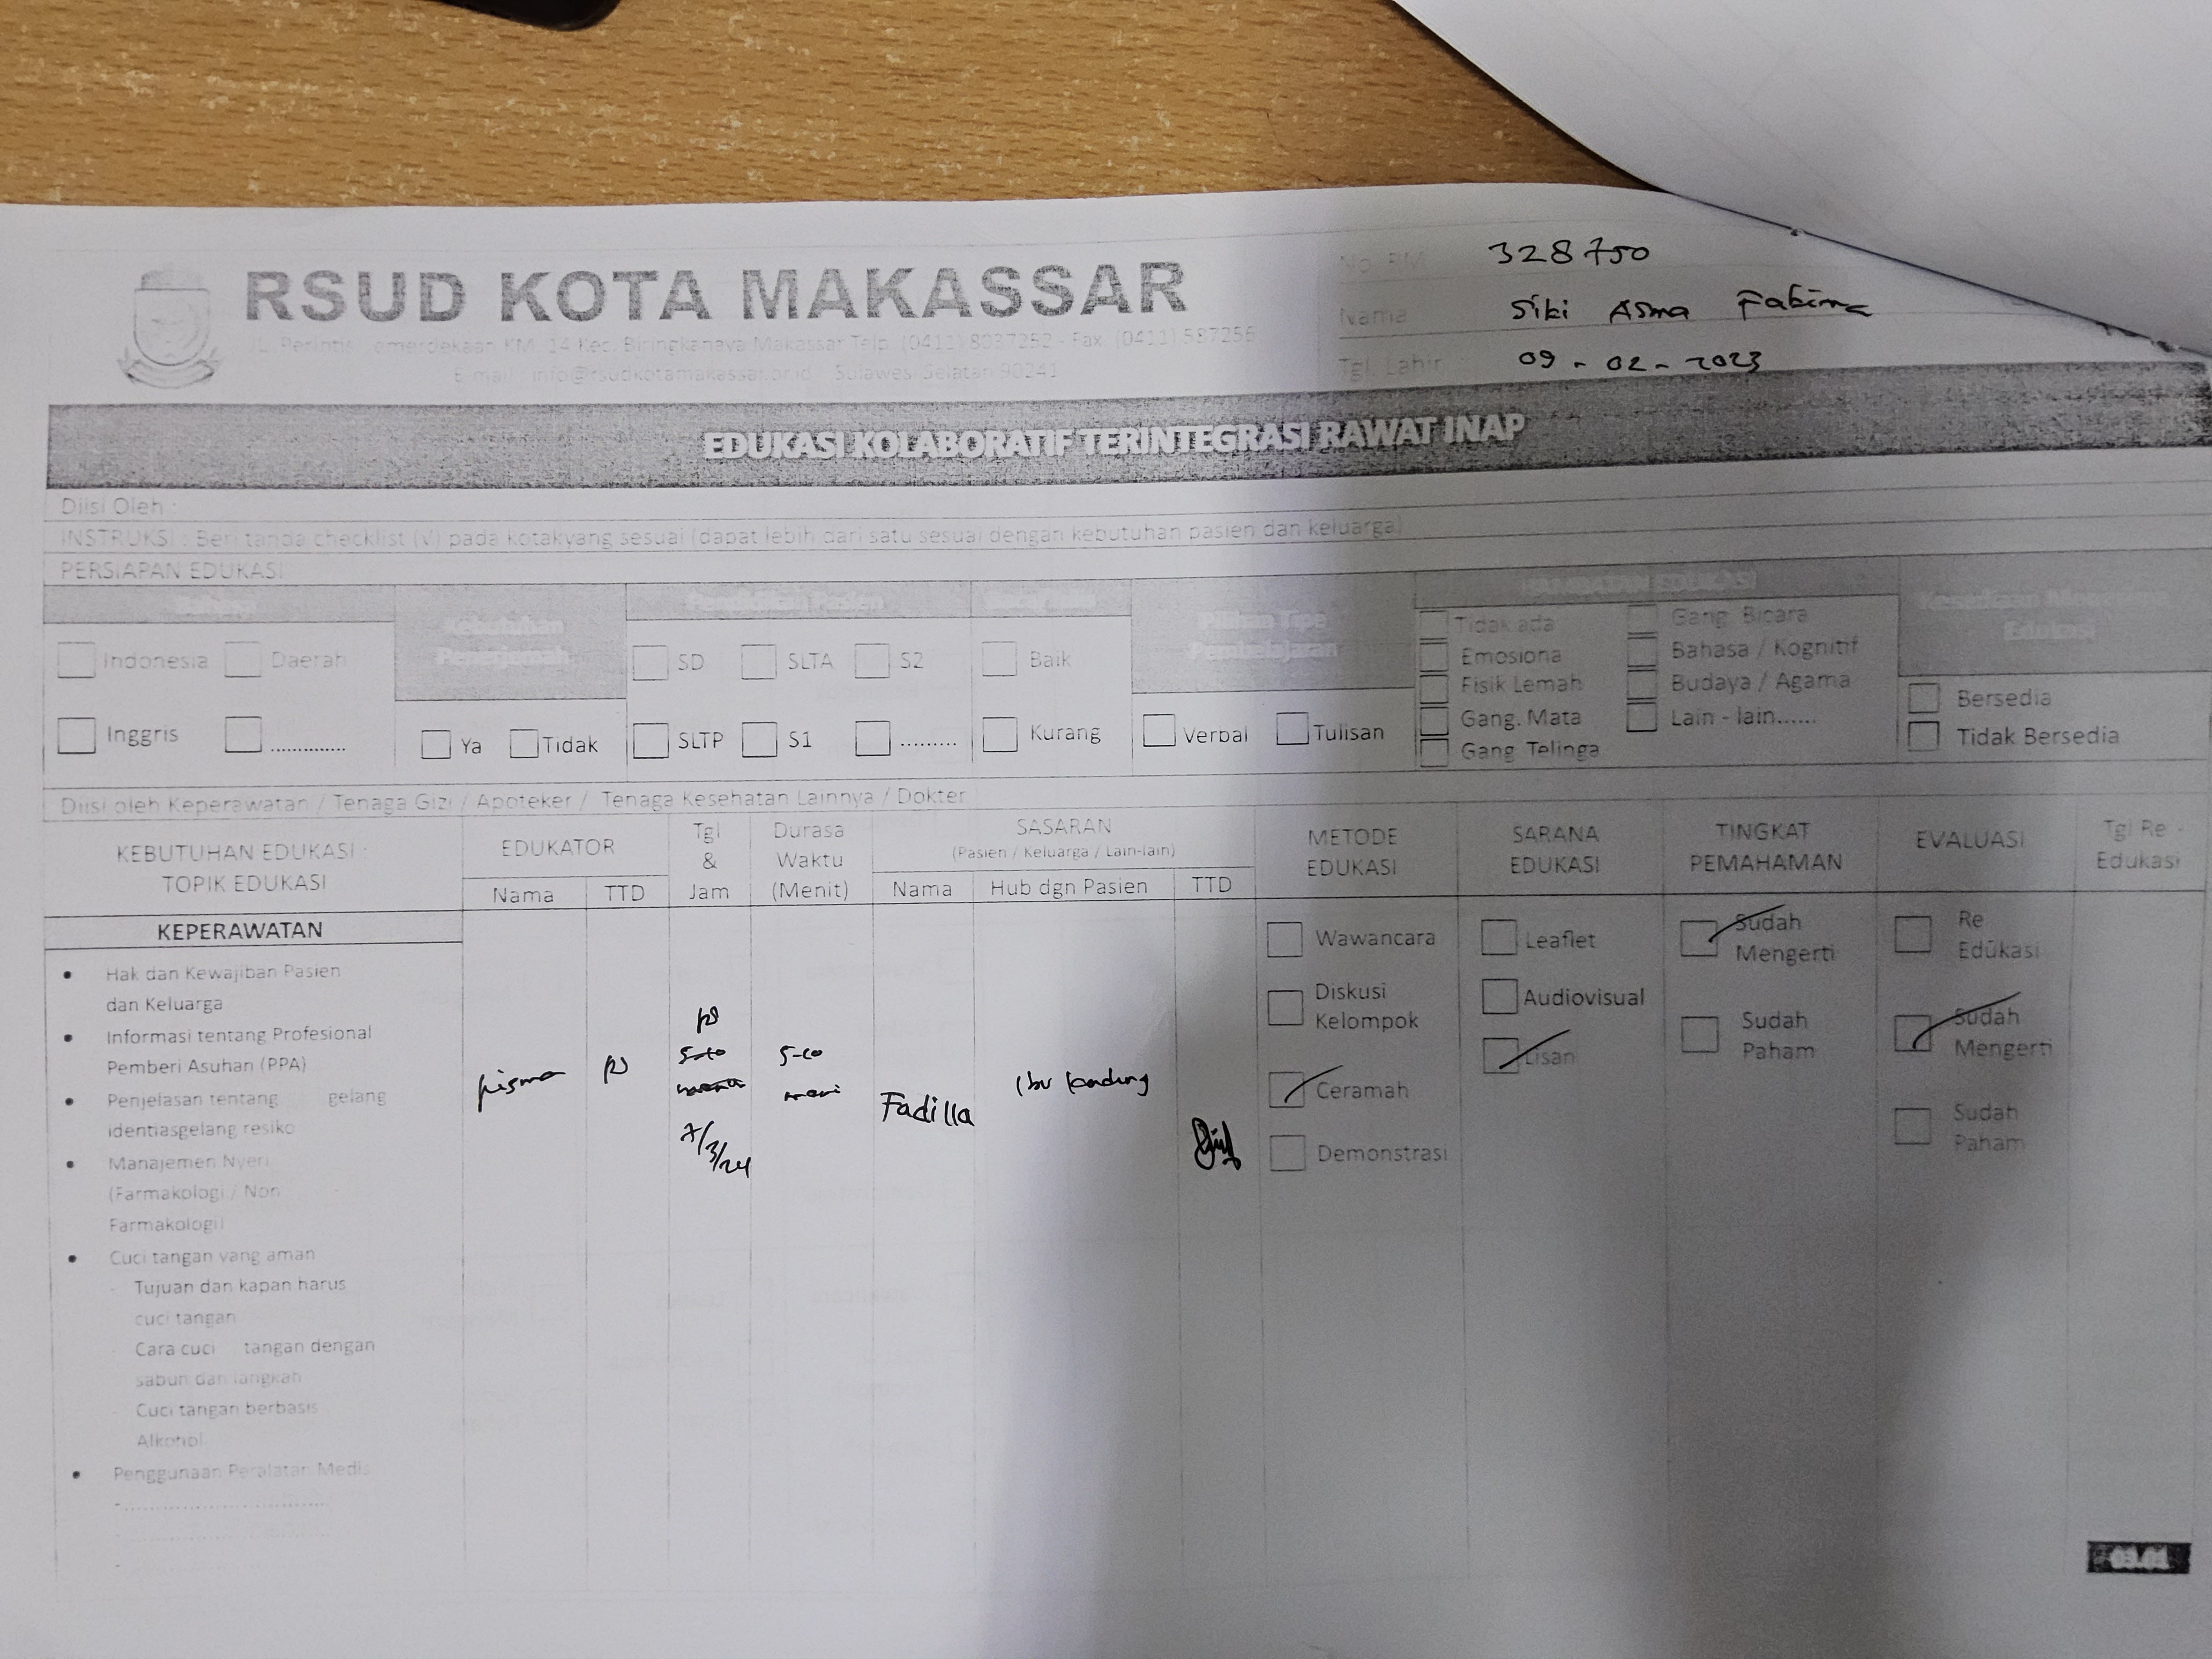 RSUD KOTA MAKASSAR
Jl. Perintis Kemerdekaan KM. 14 Kec. Biringkanaya Makassar Telp. (0411) Fax. (0411)
Sulawesi Selatan 90241
328750
Nama Siti Asma
Tgl. Lahir 09 - 02 - 2023
EDUKASI KOLABORATIF TERINTEGRASI RAWAT INAP
Diisi Oleh :
INSTRUKSI : Beri tanda checklist (V) pada kotakyang sesuai (dapat lebih dari satu sesuai dengan kebutuhan pasien dan keluarga)
PERSIAPAN EDUKASI
HAMBATAN EDUKASI
Indonesia Daerah
Inggris ..............
Ya Tidak
SD SLTA S2
SLTP S1 ..........
Baik
Kurang
Verbal Tulisan
Tidak ada Gang Bicara
Emosiona Bahasa / Kognitif
Fisik Lemah Budaya / Agama
Gang. Mata Lain - lain......
Gang Telinga
Bersedia
Tidak Bersedia
Diisi oleh Keperawatan / Tenaga Gizi / Apoteker / Tenaga Kesehatan Lainnya / Dokter
KEBUTUHAN EDUKASI :
TOPIK EDUKASI
EDUKATOR
Nama TTD
Tgl
&
Jam
Durasa
Waktu
(Menit)
SASARAN
(Pasien / Keluarga / Lain-lain)
Nama Hub dgn Pasien TTD
METODE
EDUKASI
SARANA
EDUKASI
TINGKAT
PEMAHAMAN
EVALUASI
Tgl Re -
Edukasi
KEPERAWATAN
• Hak dan Kewajiban Pasien
dan Keluarga
• Informasi tentang Profesional
Pemberi Asuhan (PPA)
• Penjelasan tentang gelang
identiasgelang resiko
• Manajemen Nyeri
(Farmakologi / Non
Farmakologi)
• Cuci tangan yang aman
- Tujuan dan kapan harus
cuci tangan
- Cara cuci tangan dengan
sabun dan langkah
- Cuci tangan berbasis
Alkohol
• Penggunaan Peralatan Medis
Fadilla
Ibu kandung
Wawancara
Diskusi
Kelompok
Ceramah
Demonstrasi
Leaflet
Audiovisual
Lisan
Sudah
Mengerti
Sudah
Paham
Re
Edukasi
Sudah
Mengerti
Sudah
Paham